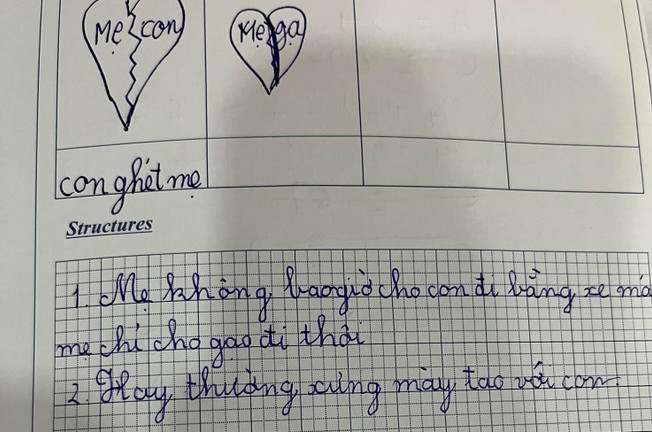 Mẹ con
Mẹ gạ
con ghét mẹ
Structures
1. Mẹ không bao giờ cho con đi bằng xe mà
mẹ chỉ cho gạo đi thôi
2. Hay thường xưng mày tao với con.